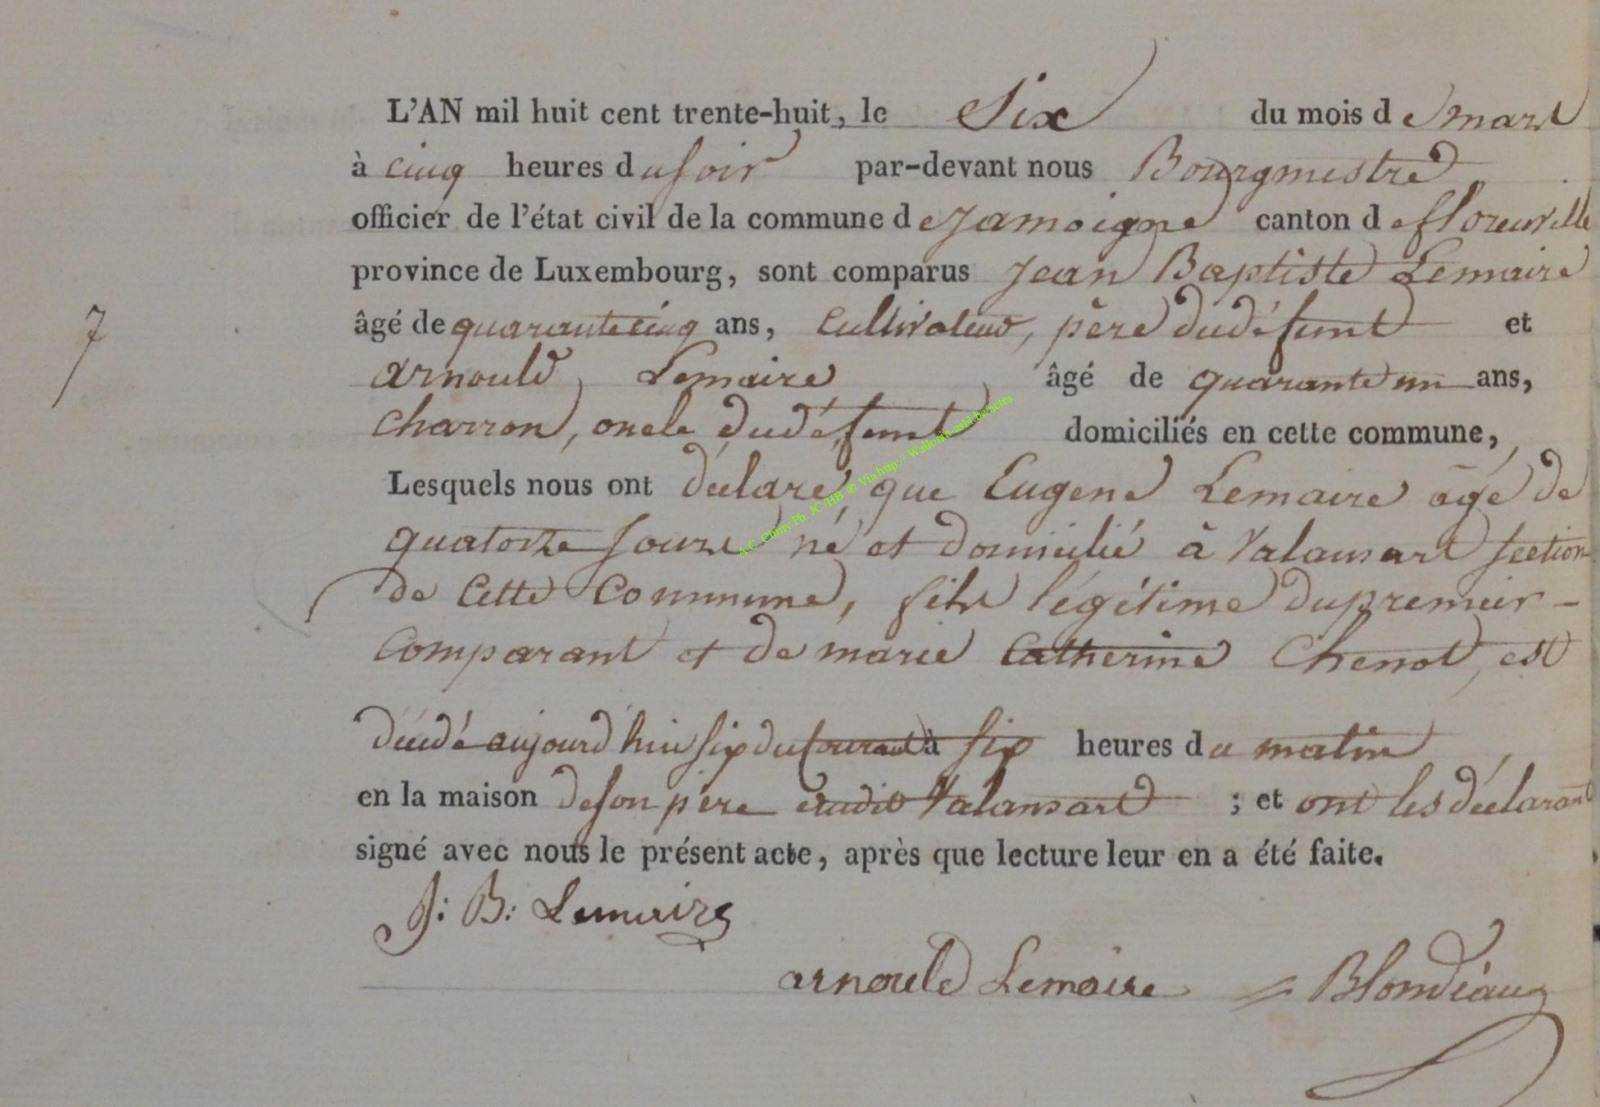 L'AN mil huit cent trente-huit, le Six du mois de mars
à cinq heures du soir par-devant nous Bourgmestre
officier de l'état civil de la commune de Jamoigne canton de florenville
province de Luxembourg, sont comparus Jean Baptiste Lemaire
âgé de quarante cinq ans, Cultivateur, père du défunt et
7
arnould Lemaire âgé de quarante un ans,
charron, oncle du défunt domiciliés en cette commune,
Lesquels nous ont déclaré, que Eugene Lemaire âgé de
quatorze jours né et domicilié à Valansart section
de cette Commune, fils légitime du premier-
comparant et de marie Catherine Chenot, est
décédé aujourd'hui six du courant à six heures du matin
en la maison de son père audit Valansart ; et ont les déclarant
signé avec nous le présent acte, après que lecture leur en a été faite.
J: B: Lemaire
arnould Lemaire = Blondiaux